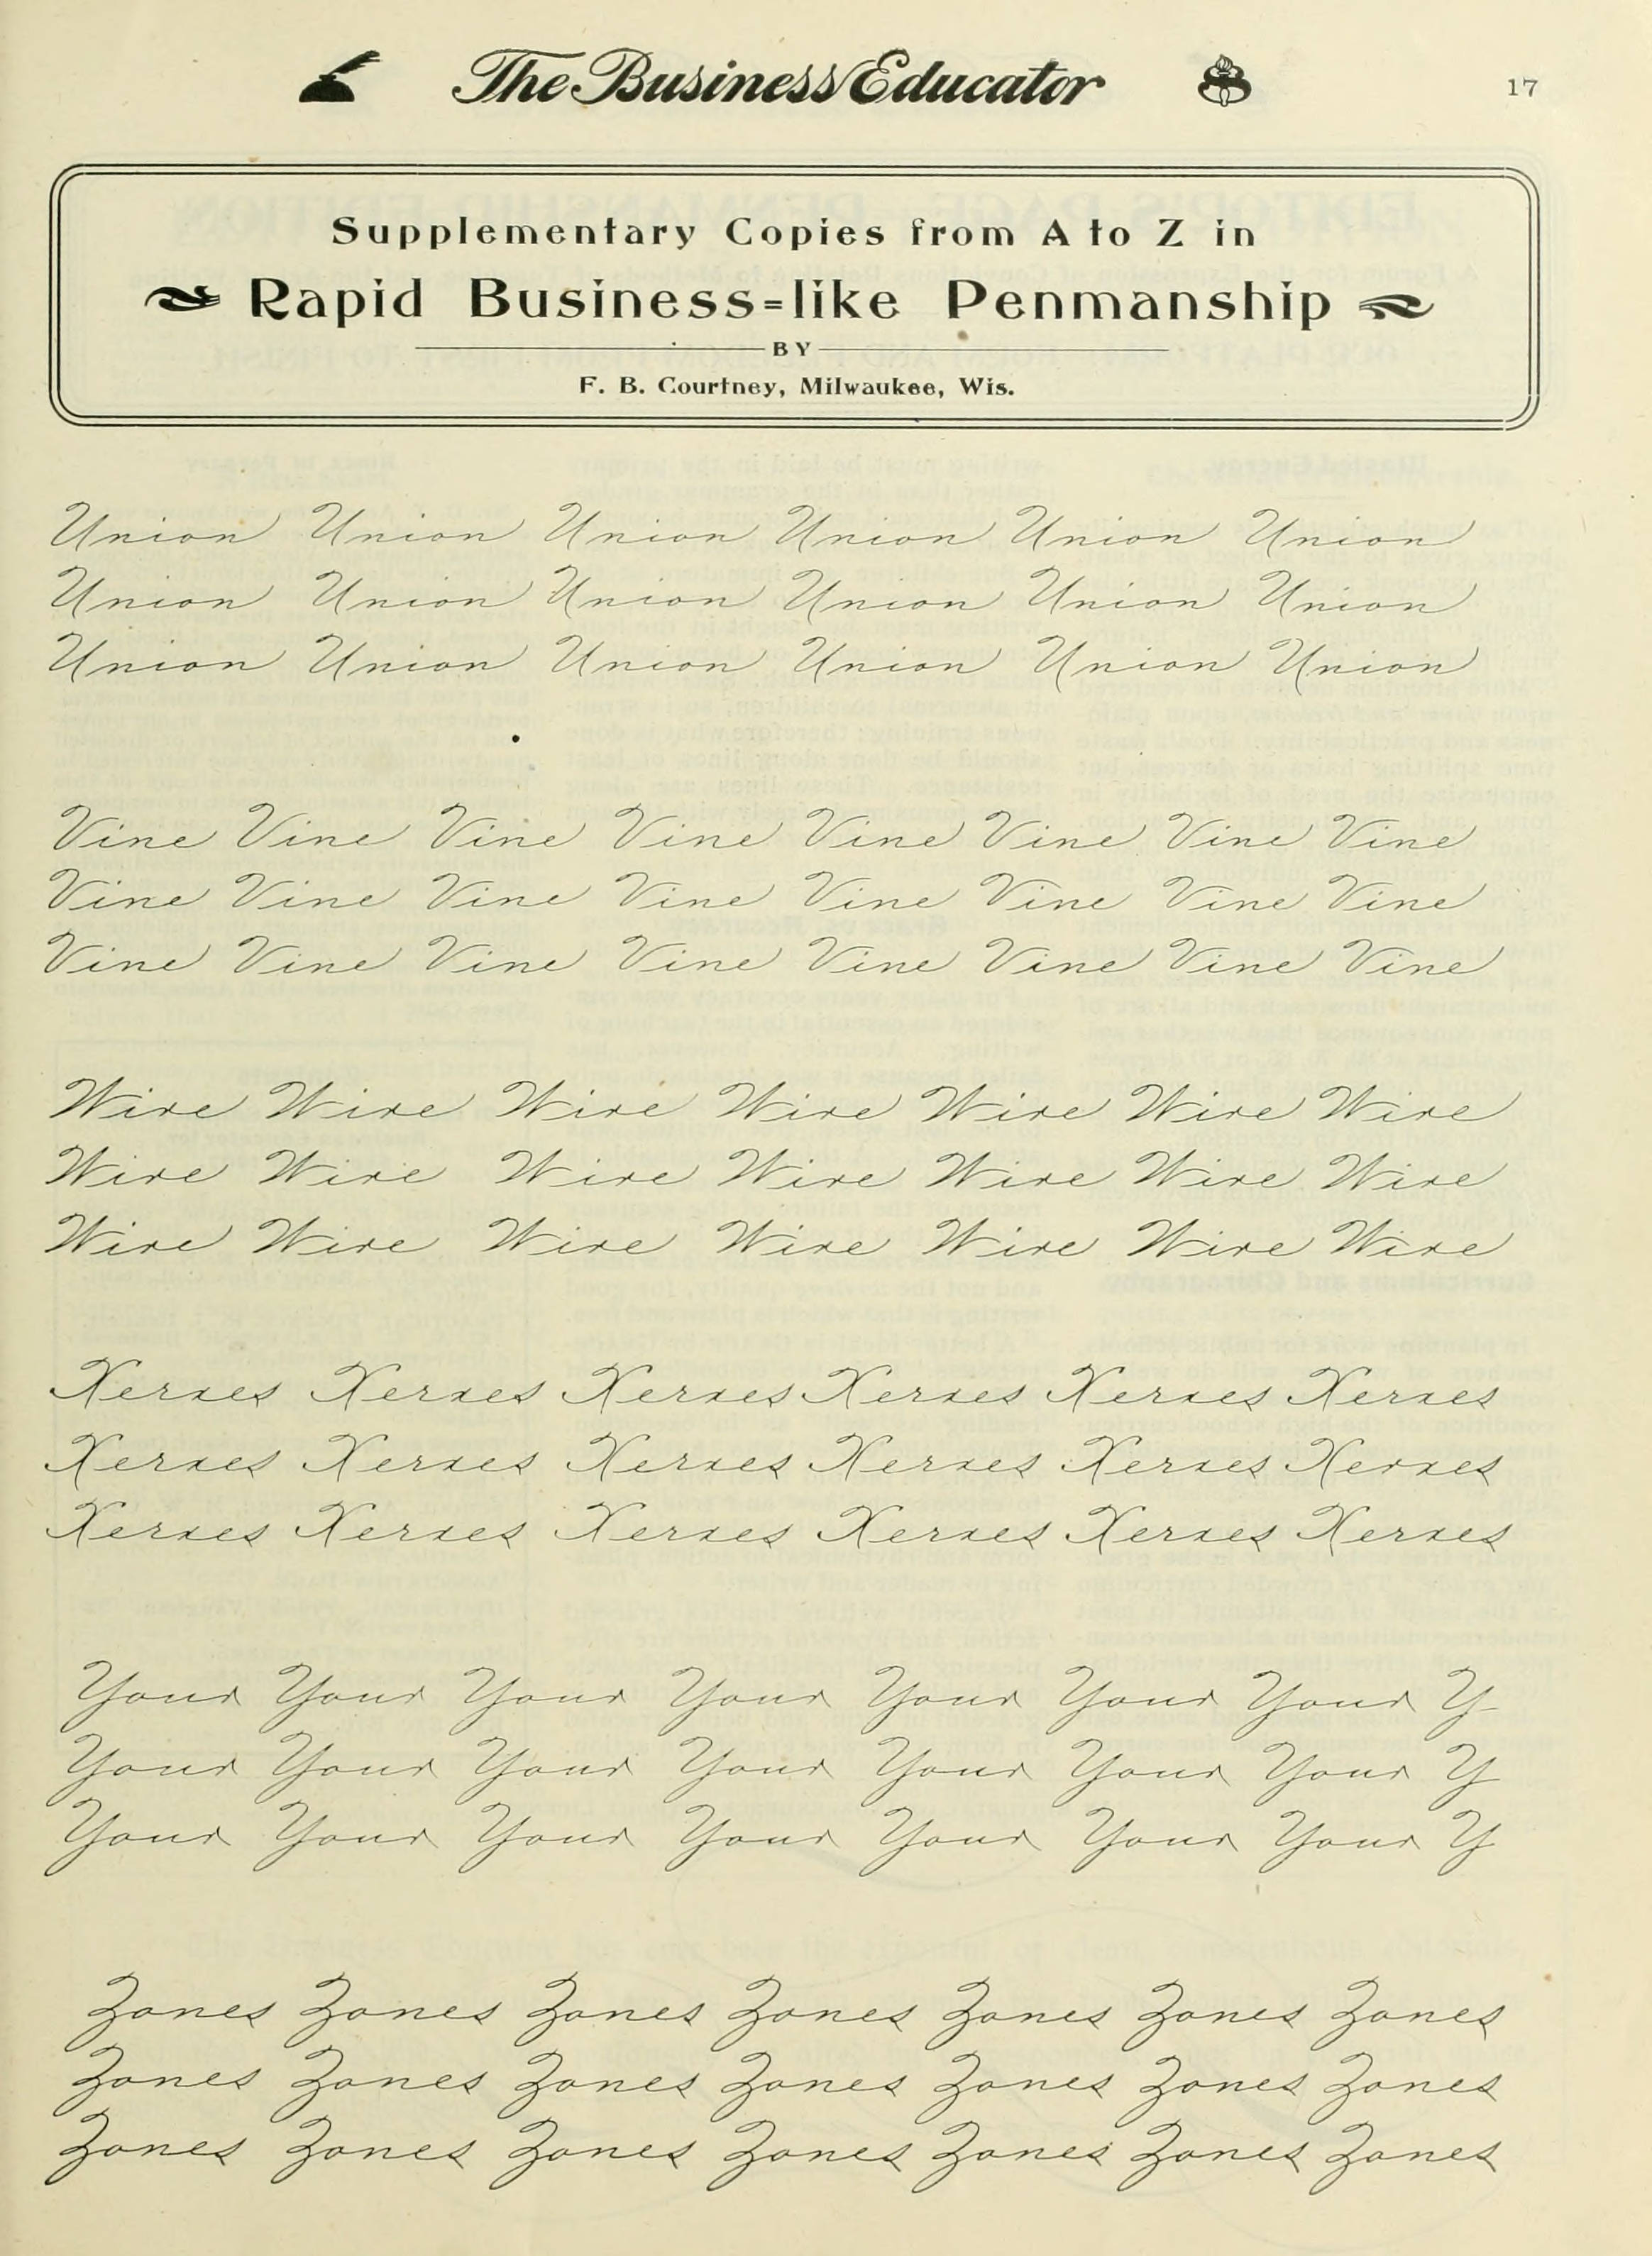 The Business Educator 17
Supplementary Copies from A to Z in
Rapid Business=like Penmanship
BY
F. B. Courtney, Milwaukee, Wis.
Union Union Union Union Union Union
Union Union Union Union Union Union
Union Union Union Union Union Union
Vine Vine Vine Vine Vine Vine Vine Vine
Vine Vine Vine Vine Vine Vine Vine Vine
Vine Vine Vine Vine Vine Vine Vine Vine
Wire Wire Wire Wire Wire Wire Wire
Wire Wire Wire Wire Wire Wire Wire
Wire Wire Wire Wire Wire Wire Wire
Xerxes Xerxes Xerxes Xerxes Xerxes Xerxes
Xerxes Xerxes Xerxes Xerxes Xerxes Xerxes
Xerxes Xerxes Xerxes Xerxes Xerxes Xerxes
Your Your Your Your Your Your Your Y
Your Your Your Your Your Your Your Y
Your Your Your Your Your Your Your Y
Zones Zones Zones Zones Zones Zones Zones
Zones Zones Zones Zones Zones Zones Zones
Zones Zones Zones Zones Zones Zones Zones